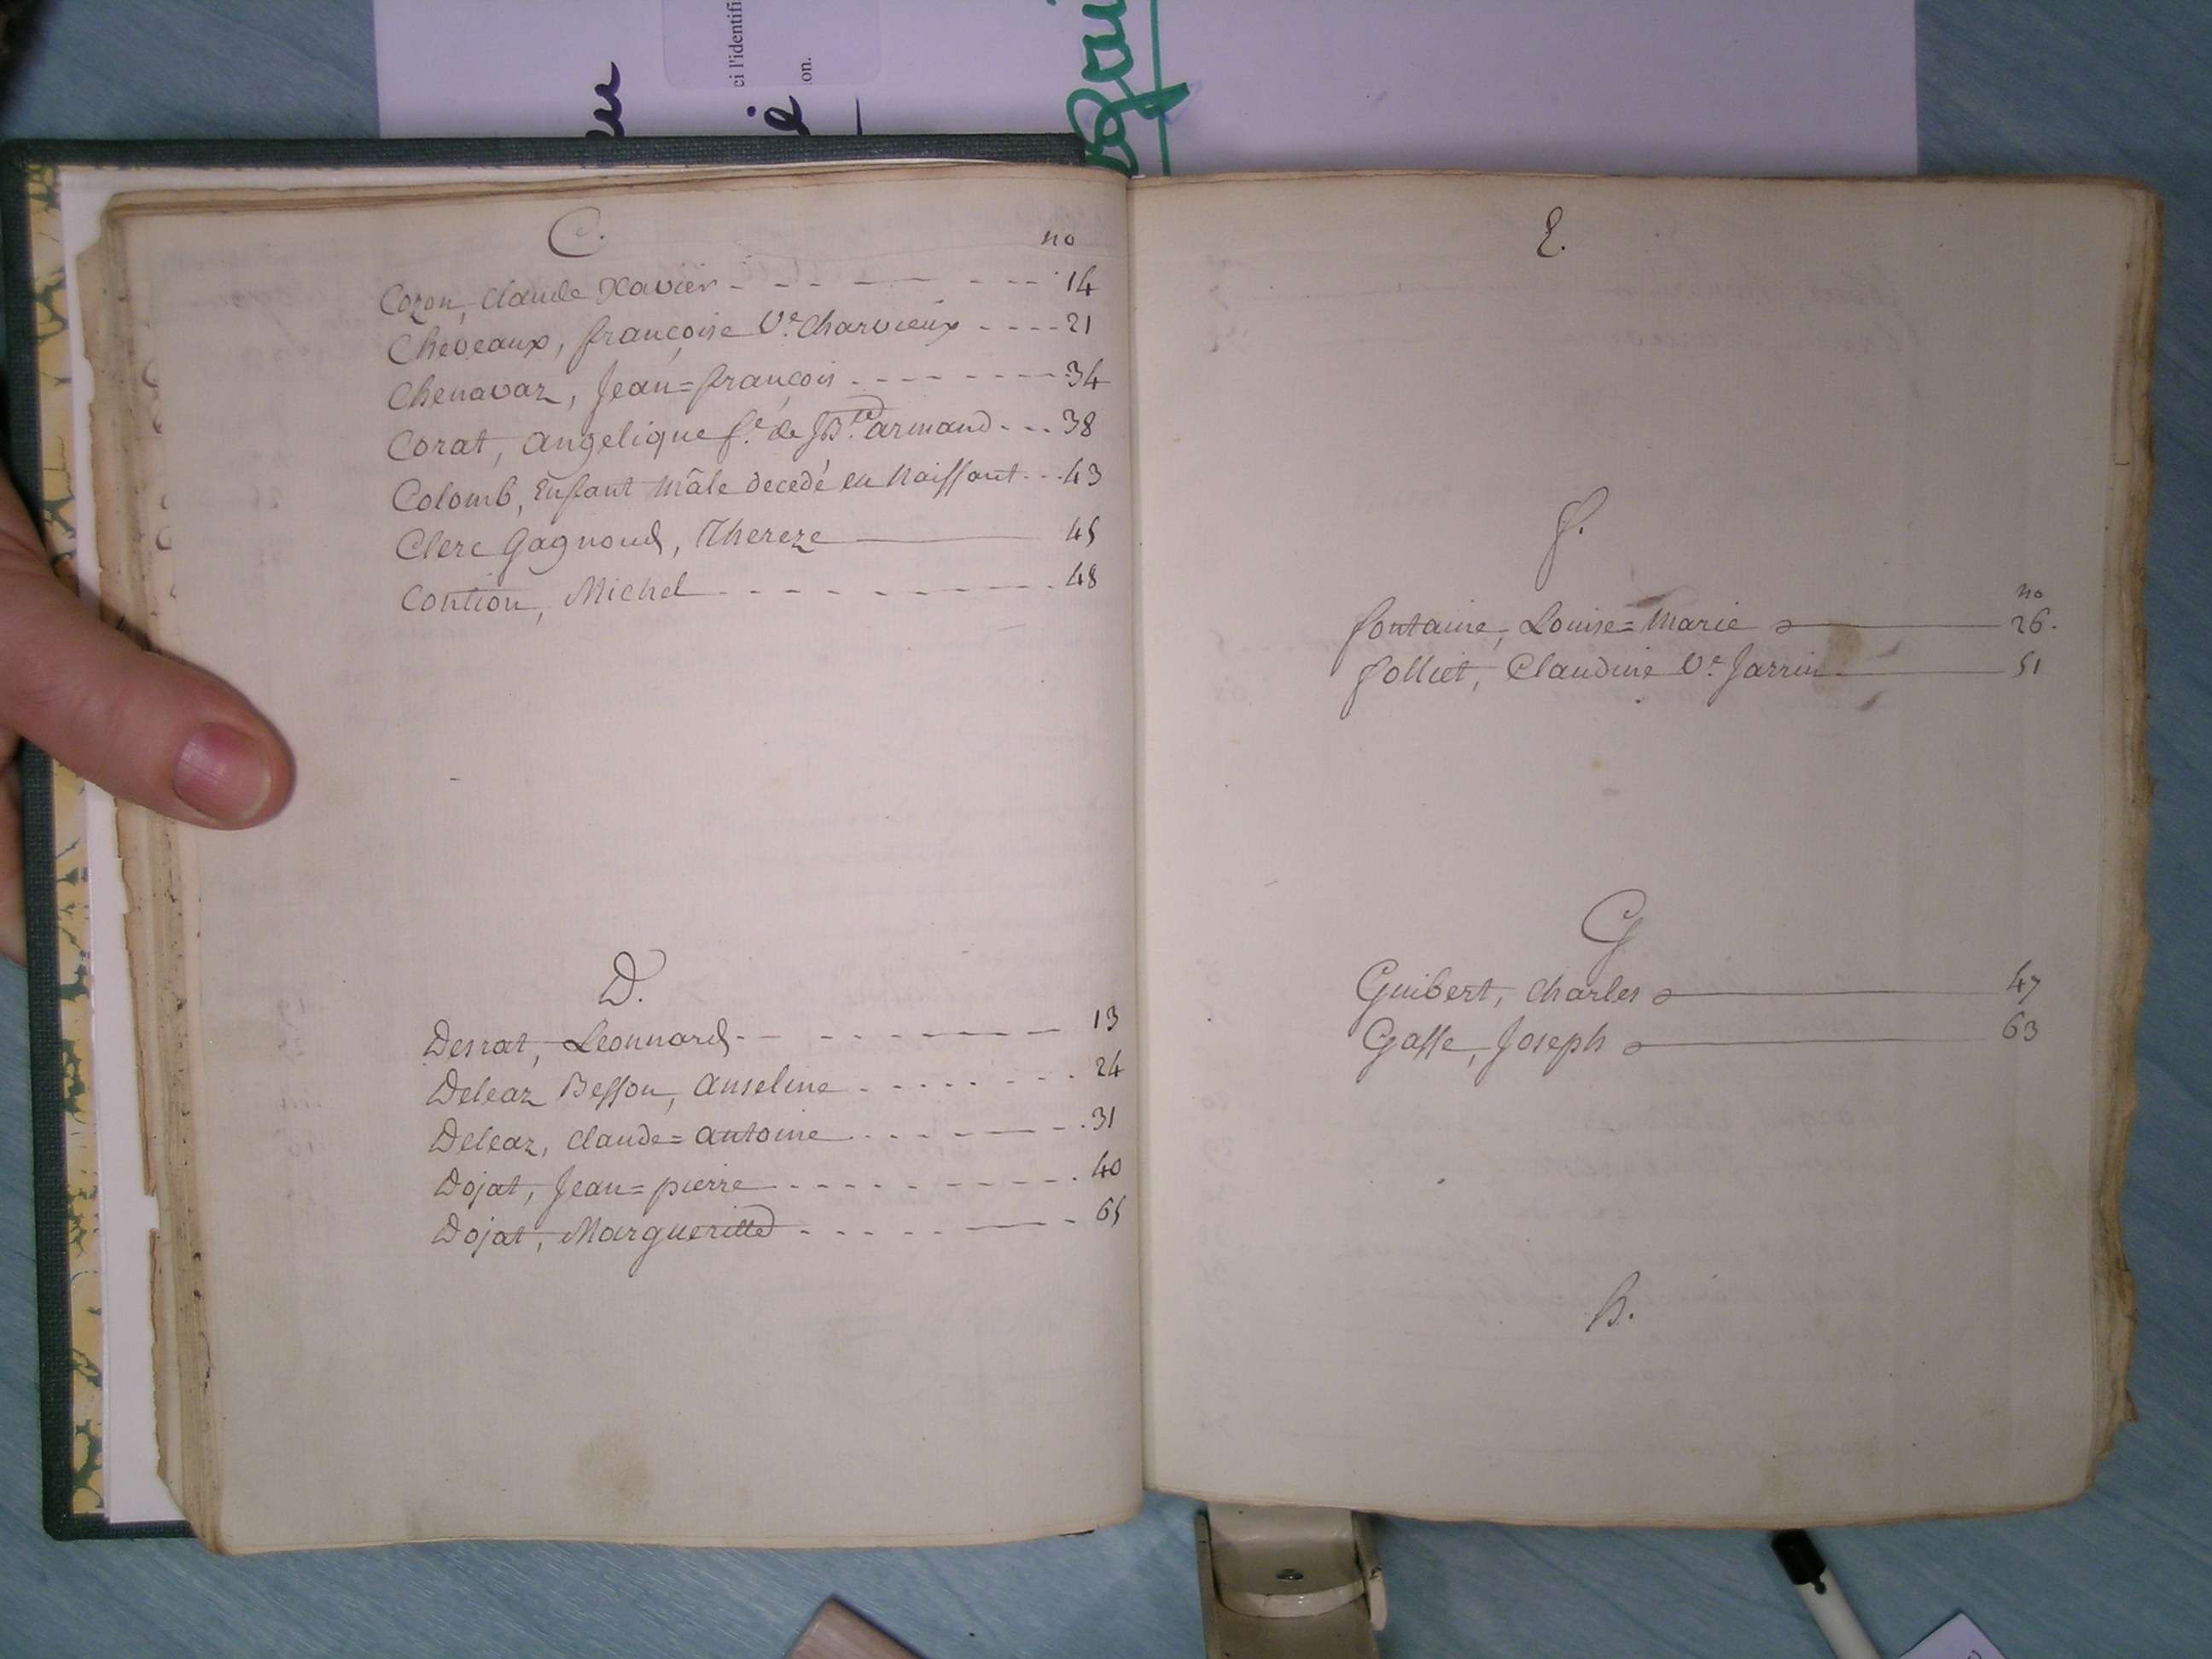 ci l'identifi
on.
C.
no
Cozon, Claude Xavier - - - - - - - - 14
Cheveaux, françoise Ve. Charvieux - - - - 21
Chenavaz, Jean=françois - - - - - - - - 34
Corat, angelique fe. de JBte. armand - - - 38
Colomb, Enfant Mâle decedé en Naissant - - - 43
Clerc Gagnoud, Thereze 45
Contion, Michel - - - - - - - - 48
D.
Desrat, Leonnard - - - - - - - - 13
Deleaz Besson, anselme - - - - - - - 24
Deleaz, Claude=antoine - - - - - - - 31
Dojat, Jean=pierre - - - - - - - - - 40
Dojat, Margueritte - - - - - - - 65
E.
f.
no
fontaine, Louise=Marie 26.
folliet, Claudine Ve. Jarrin 51
G
Guibert, Charles 47
Gasse, Joseph 63
h.